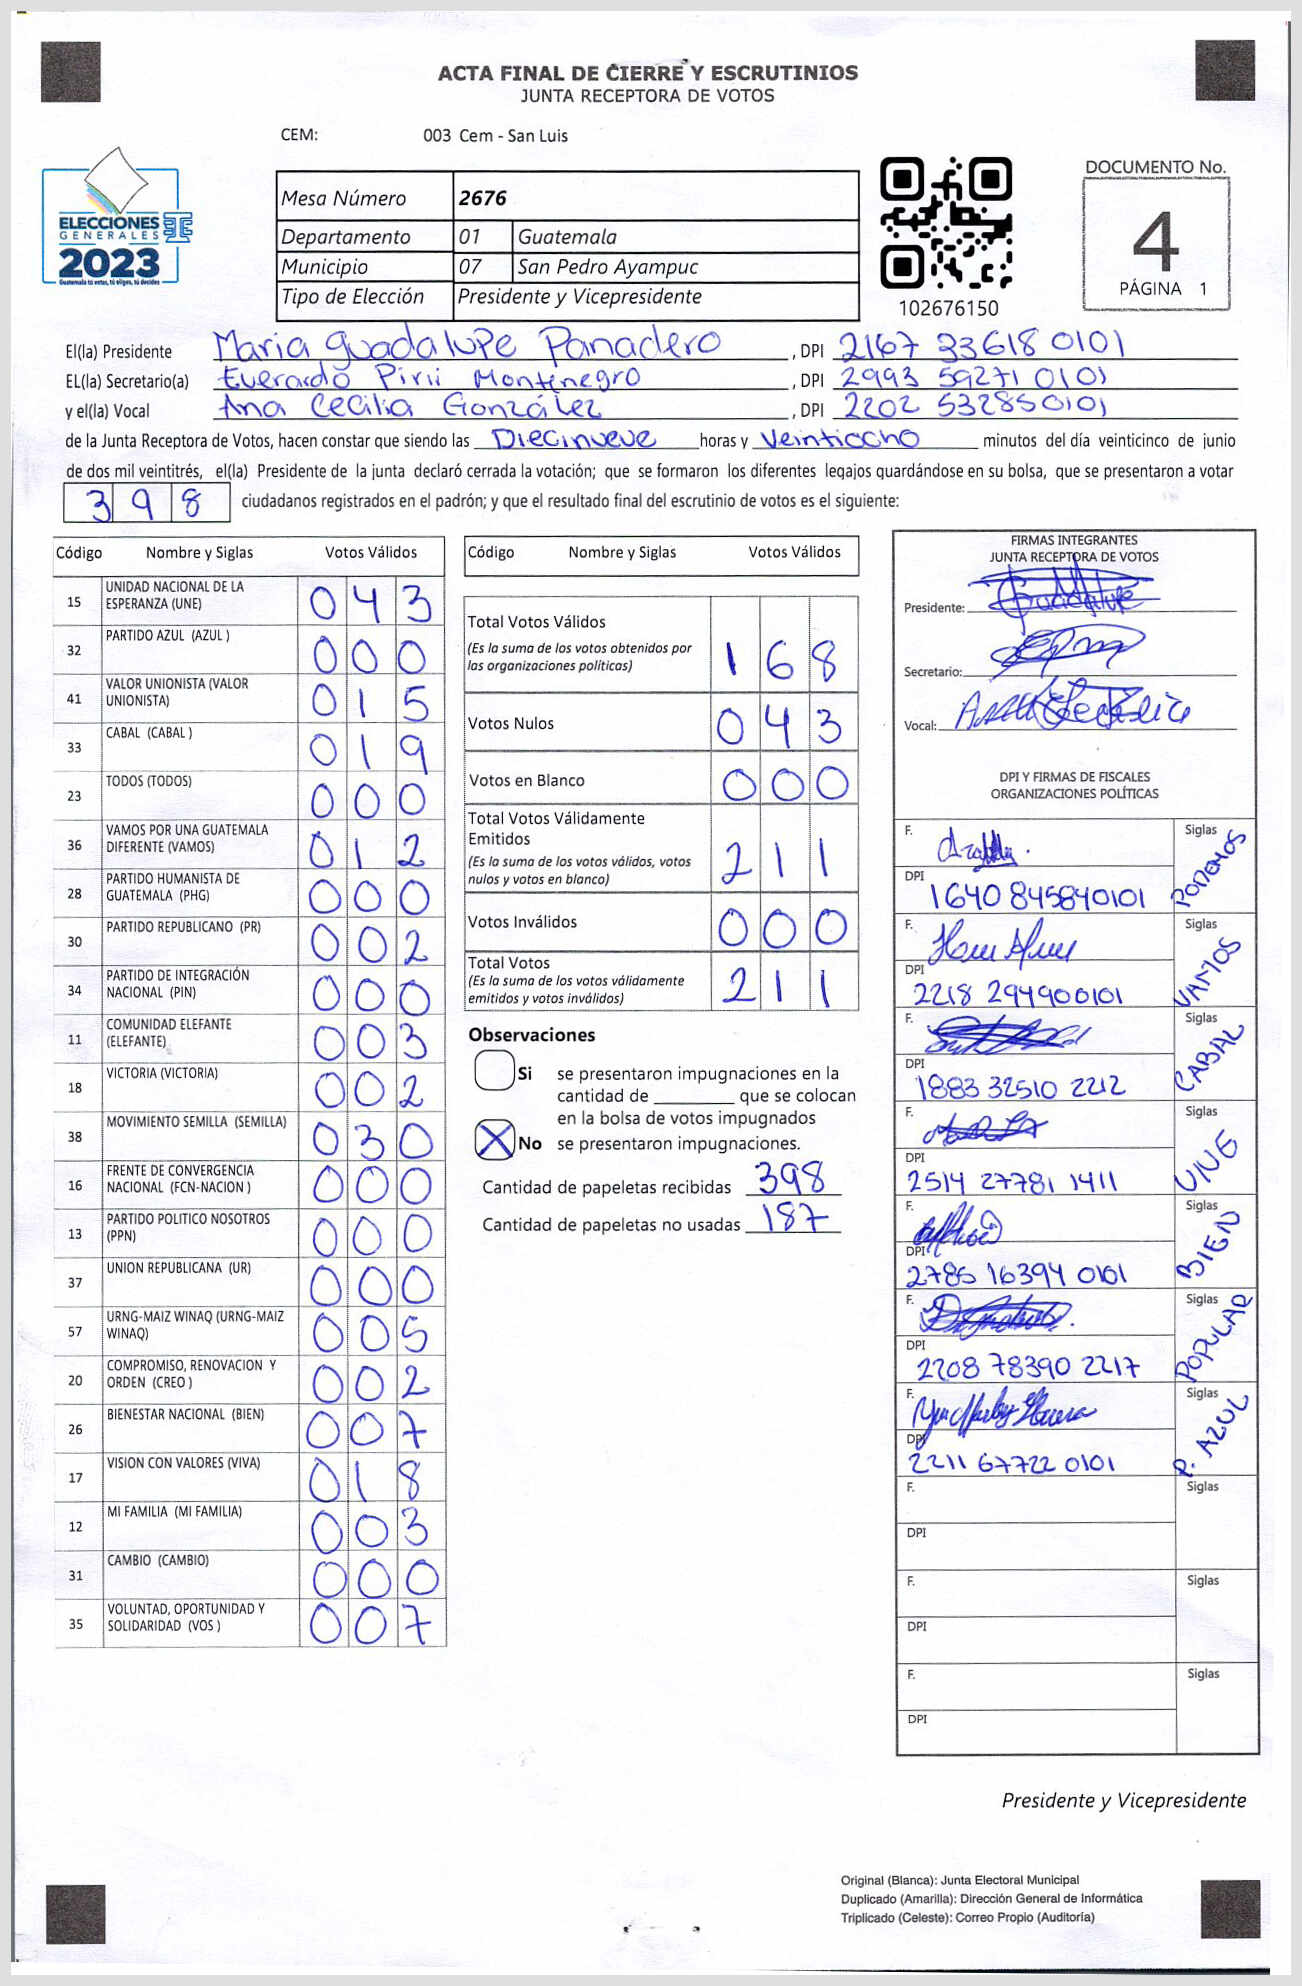 ACTA FINAL DE CIERRE Y ESCRUTINIOS
JUNTA RECEPTORA DE VOTOS
CEM: 003 Cem - San Luis
ELECCIONES
GENERALES
2023
Guatemala tú votas, tú eliges, tú decides
Mesa Número 2676
Departamento 01 Guatemala
Municipio 07 San Pedro Ayampuc
Tipo de Elección Presidente y Vicepresidente
102676150
DOCUMENTO No.
4
PÁGINA 1
El(la) Presidente Maria Guadalupe Panadero , DPI 2167 33618 0101
EL(la) Secretario(a) Everardo Pirii Montenegro , DPI 2993 59271 0101
y el(la) Vocal Ana Cecilia González , DPI 2202 53285 0101
de la Junta Receptora de Votos, hacen constar que siendo las Diecinueve horas y Veintiocho minutos del día veinticinco de junio
de dos mil veintitrés, el(la) Presidente de la junta declaró cerrada la votación; que se formaron los diferentes legajos quardándose en su bolsa, que se presentaron a votar
398 ciudadanos registrados en el padrón; y que el resultado final del escrutinio de votos es el siguiente:
Código Nombre y Siglas Votos Válidos
15 UNIDAD NACIONAL DE LA ESPERANZA (UNE) 043
32 PARTIDO AZUL (AZUL ) 000
41 VALOR UNIONISTA (VALOR UNIONISTA) 015
33 CABAL (CABAL ) 019
23 TODOS (TODOS) 000
36 VAMOS POR UNA GUATEMALA DIFERENTE (VAMOS) 012
28 PARTIDO HUMANISTA DE GUATEMALA (PHG) 000
30 PARTIDO REPUBLICANO (PR) 002
34 PARTIDO DE INTEGRACIÓN NACIONAL (PIN) 000
11 COMUNIDAD ELEFANTE (ELEFANTE) 003
18 VICTORIA (VICTORIA) 002
38 MOVIMIENTO SEMILLA (SEMILLA) 030
16 FRENTE DE CONVERGENCIA NACIONAL (FCN-NACION ) 000
13 PARTIDO POLITICO NOSOTROS (PPN) 000
37 UNION REPUBLICANA (UR) 000
57 URNG-MAIZ WINAQ (URNG-MAIZ WINAQ) 005
20 COMPROMISO, RENOVACION Y ORDEN (CREO ) 002
26 BIENESTAR NACIONAL (BIEN) 007
17 VISION CON VALORES (VIVA) 018
12 MI FAMILIA (MI FAMILIA) 003
31 CAMBIO (CAMBIO) 000
35 VOLUNTAD, OPORTUNIDAD Y SOLIDARIDAD (VOS ) 007
Código Nombre y Siglas Votos Válidos
Total Votos Válidos 168
(Es la suma de los votos obtenidos por
las organizaciones políticas)
Votos Nulos 043
Votos en Blanco 000
Total Votos Válidamente
Emitidos 211
(Es la suma de los votos válidos, votos
nulos y votos en blanco)
Votos Inválidos 000
Total Votos 211
(Es la suma de los votos válidamente
emitidos y votos inválidos)
Observaciones
Si se presentaron impugnaciones en la
cantidad de ________ que se colocan
en la bolsa de votos impugnados
X No se presentaron impugnaciones.
Cantidad de papeletas recibidas 398
Cantidad de papeletas no usadas 187
FIRMAS INTEGRANTES
JUNTA RECEPTORA DE VOTOS
Presidente: Guadalupe
Secretario:
Vocal:
DPI Y FIRMAS DE FISCALES
ORGANIZACIONES POLÍTICAS
F. Siglas PODEMOS
DPI 1640 84584 0101
F. Siglas VAMOS
DPI 2218 29490 0101
F. Siglas CABAL
DPI 1883 32510 2212
F. Siglas VIVE
DPI 2514 27781 1411
F. Siglas BIEN
DPI 2785 16394 0101
F. Siglas POPULAR
DPI 2208 78390 2217
F. Siglas P. AZUL
DPI 2211 67722 0101
F. Siglas
DPI
F. Siglas
DPI
F. Siglas
DPI
Presidente y Vicepresidente
Original (Blanca): Junta Electoral Municipal
Duplicado (Amarilla): Dirección General de Informática
Triplicado (Celeste): Correo Propio (Auditoría)